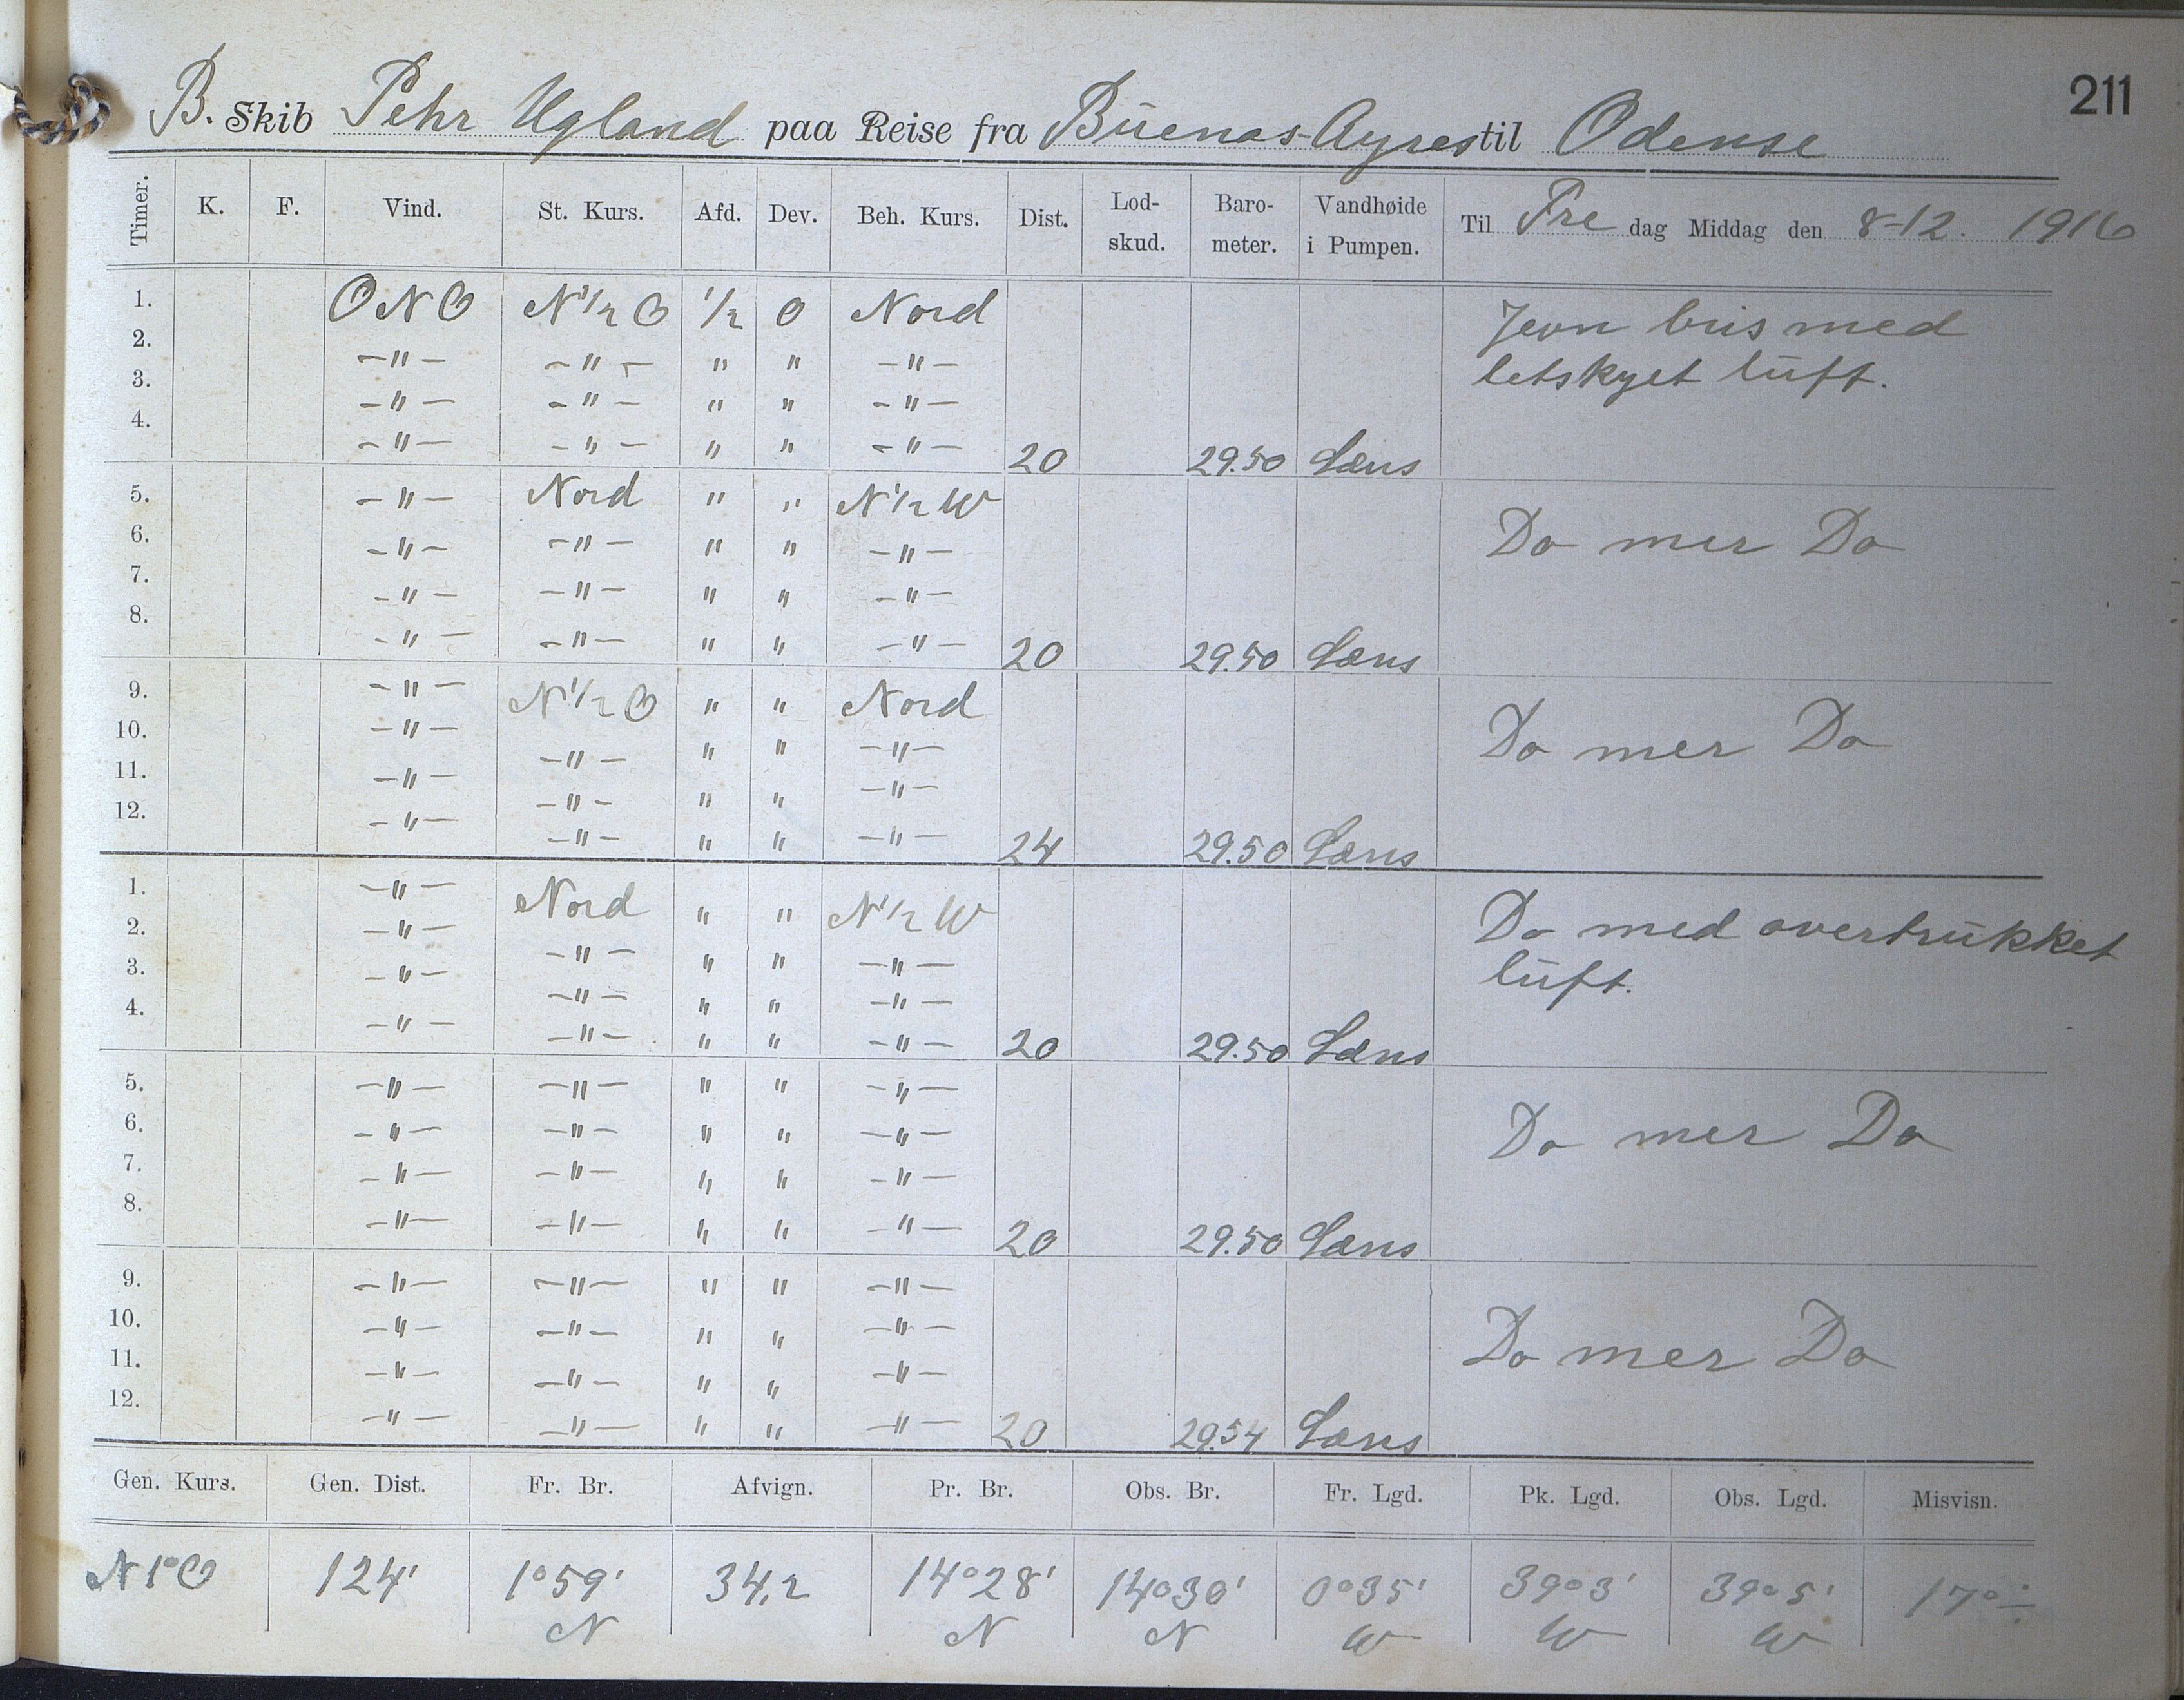 211
B. Skib Pehr Ugland paa Reise fra Büenos-Ayres til Odense
Timer. K. F. Vind. St. Kurs. Afd. Dev. Beh. Kurs. Dist. Lod-skud. Baro-meter. Vandhøide i Pumpen. Til Fre dag Middag den 8-12. 1916
1. ONO N½O ½ O Nord Jevn bris med
2. -"- -"- " " -"- letskyet lüft.
3. -"- -"- " " -"-
4. -"- -"- " " -"- 20 29.50 Læns
5. -"- Nord " " N½W
6. -"- -"- " " -"- Do mer Do
7. -"- -"- " " -"-
8. -"- -"- " " -"- 20 29.50 Læns
9. -"- N½O " " Nord
10. -"- -"- " " -"- Do mer Do
11. -"- -"- " " -"-
12. -"- -"- " " -"- 24 29.50 Læns
1. -"- Nord " " N½W Do med overtrükket
2. -"- -"- " " -"- lüft.
3. -"- -"- " " -"-
4. -"- -"- " " -"- 20 29.50 Læns
5. -"- -"- " " -"-
6. -"- -"- " " -"- Do mer Do
7. -"- -"- " " -"-
8. -"- -"- " " -"- 20 29.50 Læns
9. -"- -"- " " -"-
10. -"- -"- " " -"- Do mer Do
11. -"- -"- " " -"-
12. -"- -"- " " -"- 20 29.54 Læns
Gen. Kurs. Gen. Dist. Fr. Br. Afvign. Pr. Br. Obs. Br. Fr. Lgd. Pk. Lgd. Obs. Lgd. Misvisn.
N1°O 124' 1°59' 34,2 14°28' 14°30' 0°35' 39°3' 39°5' 17°÷
N N N W W W